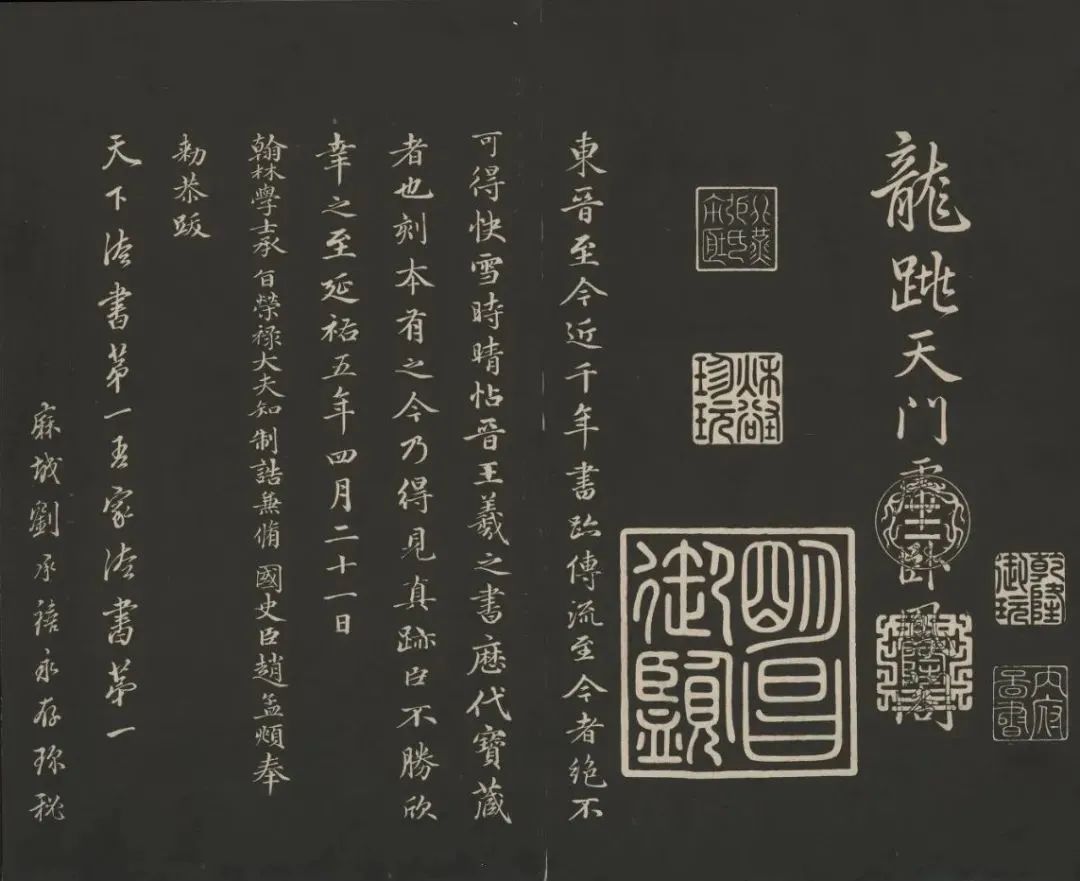 乾隆御玩
龍跳天門虎卧鳳閣
秋壑珍玩
明昌御覽
東晉至今近千年書跡傳流至今者絕不
可得快雪時晴帖晉王羲之書歷代寶藏
者也刻本有之今乃得見真跡臣不勝欣
幸之至延祐五年四月二十一日
翰林學士承旨榮祿大夫知制誥兼脩國史臣趙孟頫奉
勑恭跋
天下法書第一吾家法書第一
麻城劉承禧永存珎秘